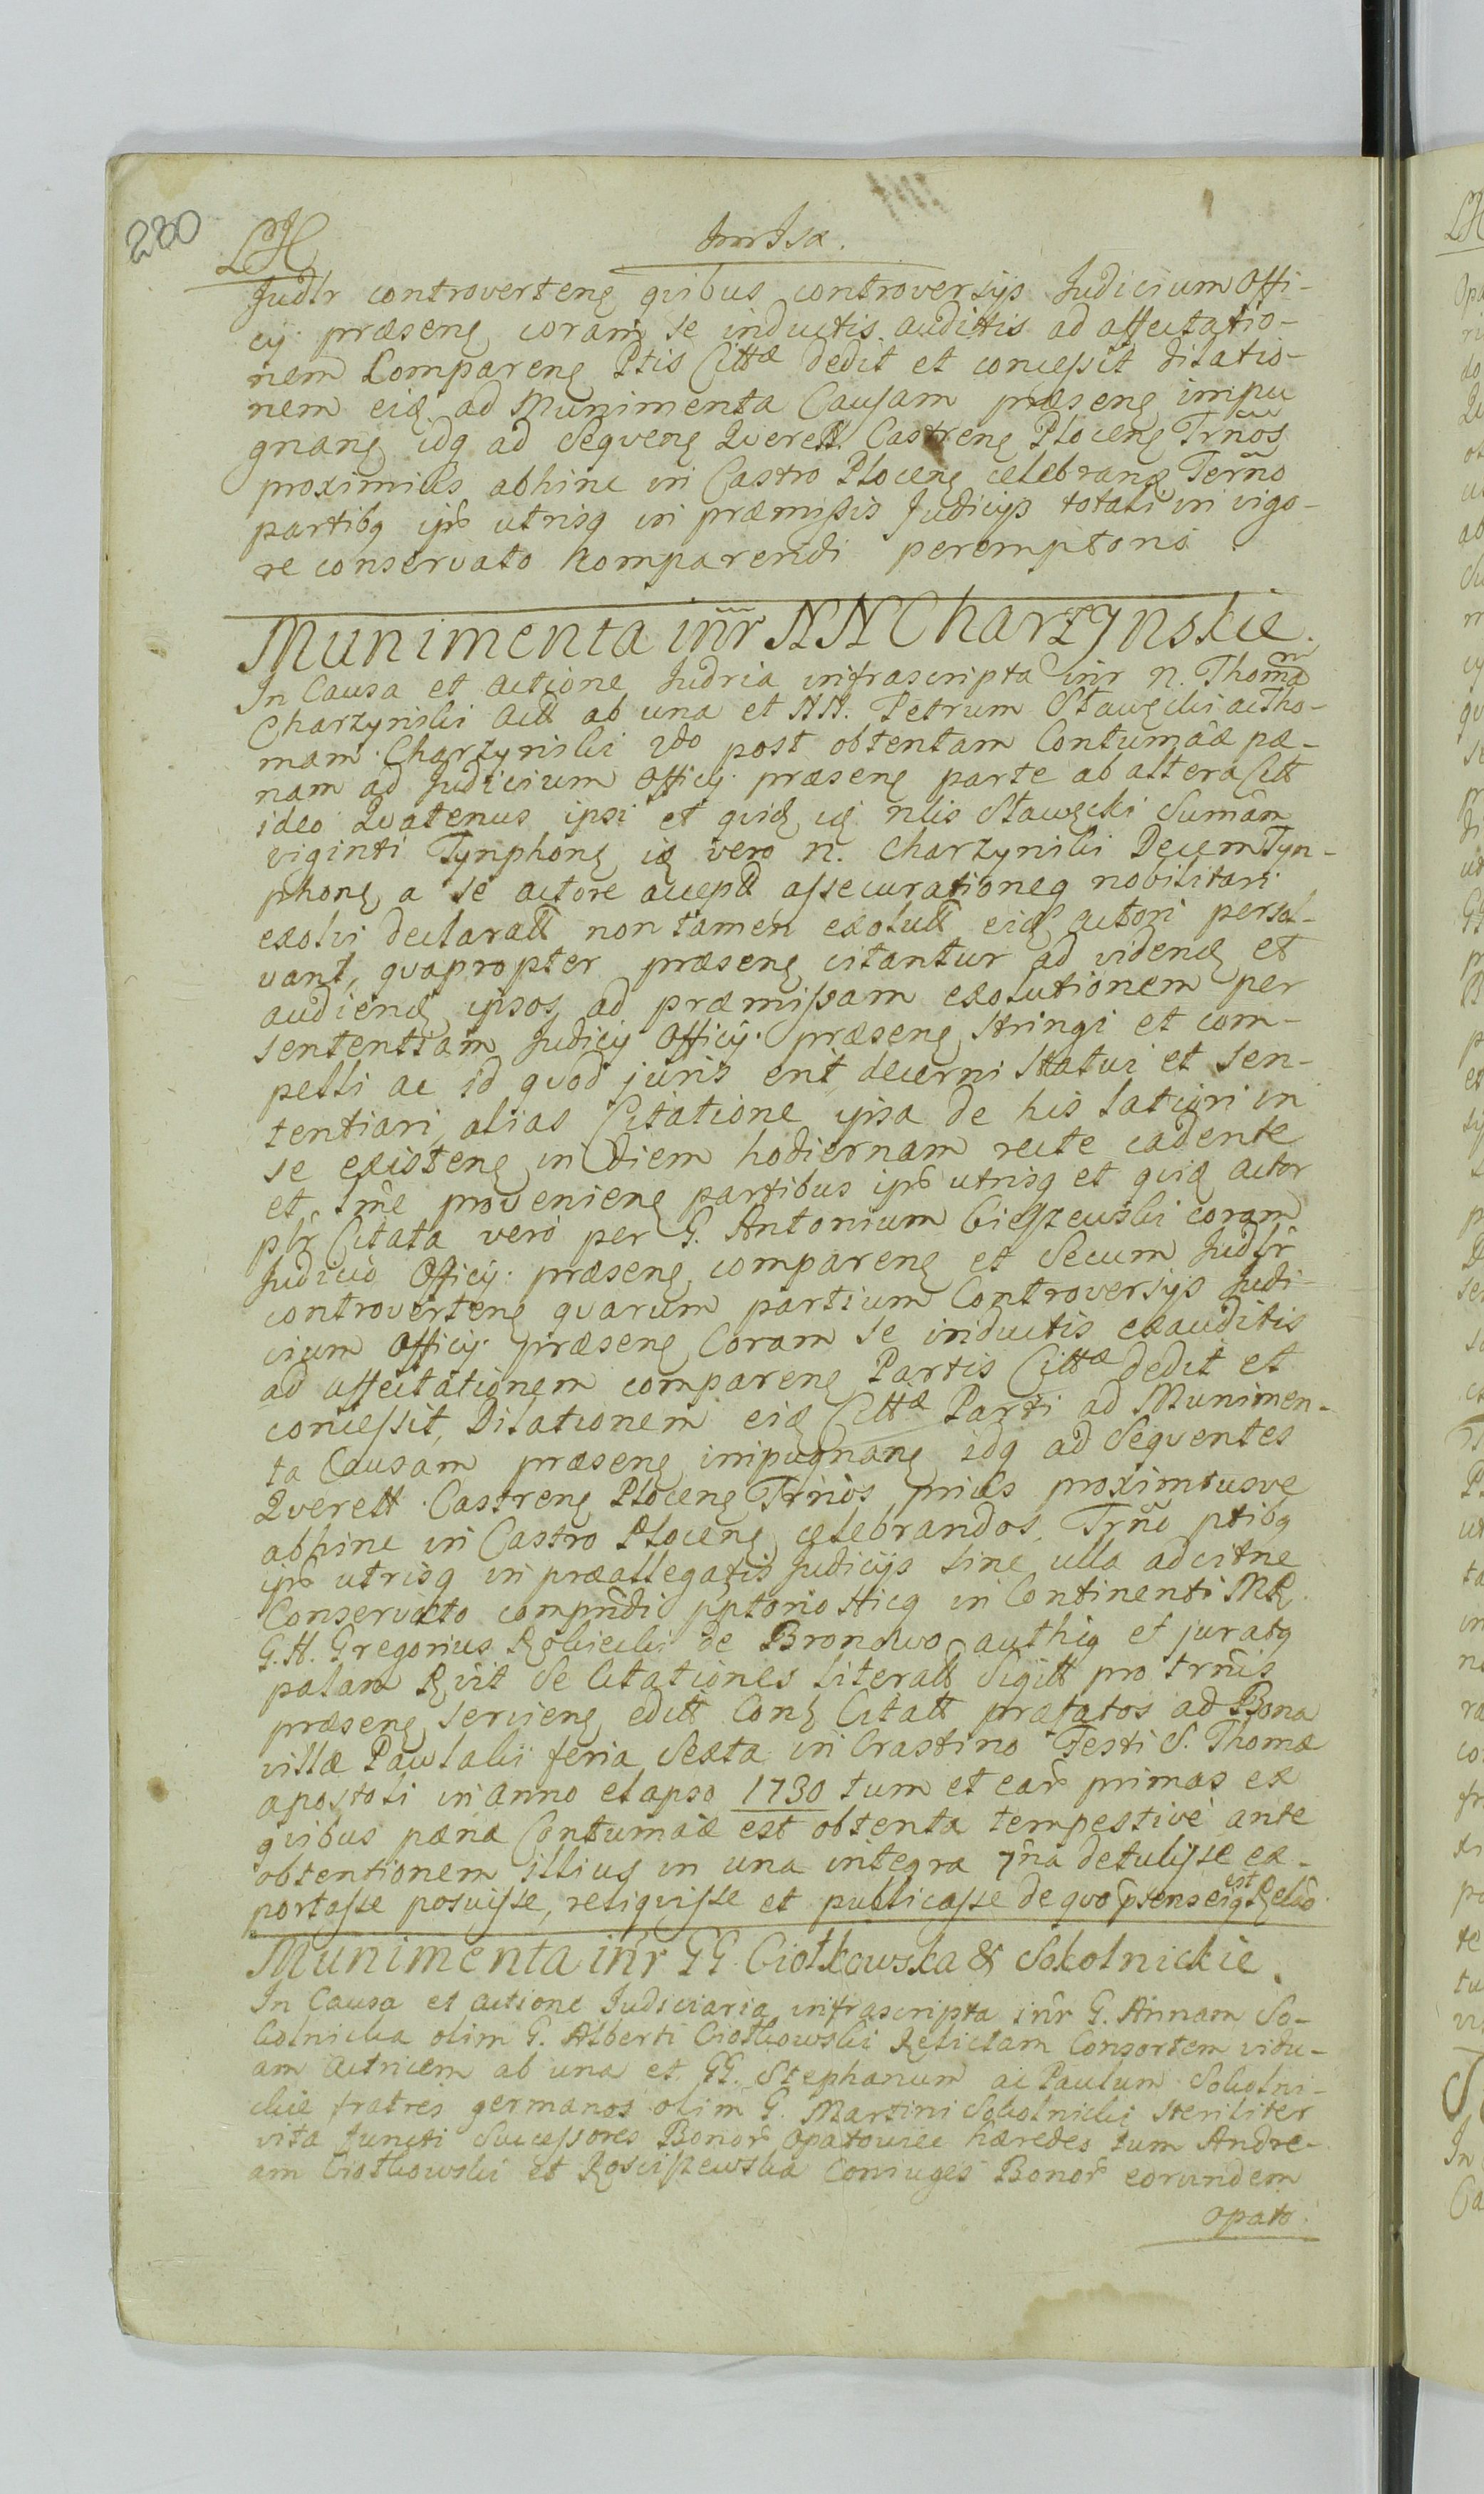 280
LH
Judlr controverteng qvibus controversijs Judicium Offi-
cij præseng coram se inductis auditis ad affectatio-
nem Compareng Ptis Cittæ dedit et concessit dilatio-
nem eid ad Munimenta Causam præseng impu
gnang idq ad Seqveng Qverell. Castreng Ploceng Trños
proximius abhinc in Castro Ploceng celebrang Termo
partibq ipŝ utrisq in præmissis Judicijs totali in vigo-
re conservato Komparendi peremptorio.
Munimenta iñr NN Charzynskie.
In Causa et actione Judria infrascripta inr N. Thomam
Charzynski Act ab una et NN. Petrum Stawęcki ac Tho-
mam Charzynski 2do post obtentam Contumaæ pæ-
nam ad Judicium Officij præseng parte ab altera Citt
ideo Qvatenus ipsi et qvid is nlis Stawęcki Sumam
viginti Tynphong is vero N. Charzynski Decem Tyn-
phong a se actore accept assecurationeq nobilitari
exolvi declaratt non tamen exolutt eid actori persol-
vant, qvapropter præseng citantur ad videng et
audieng ipsos ad præmissam exolutionem per
sententiam Judicij Officij præseng stringi et com-
pelli ac id qvod juris erit decerni statui et sen-
tentiari, alias Citatione ipsa de his latiori in
se existeng in Diem hodiernam recte cadente
et Ime provenieng partibus ipŝ utrisq et qvid actor
plr Citata vero per G. Antonium Cieszewski coram
Judicio Officij præseng compareng et Secum Judlr
controverteng qvarum partium Controversijs Judi-
cium Officij præseng Coram se inductis exauditis
ad affectationem compareng Partis Cittæ dedit et
concessit, Dilationem eid Cittæ Parti ad Munimen-
ta Causam præseng impugnang idq ad Seqventes
Qverell. Castreng Ploceng Trños prius proximiusve
abhinc in Castro Ploceng celebrandos, Trño ptibq
ipŝ utrisq in præallegatis Judicijs sine ulla adcitne
Conservato comprndi pptorio Hicq in Continenti MR.
G. H. Gregorius Robiecki de Bronowo authiq et juratq
palam Rvit Se Citationes literatt Sigitt pro trnis
præseng servieng editt Cong Citatt præfatos ad Bona
villæ Pawłaki feria Sexta in Crastino Festi S. Thomæ
apostoli in anno elapso 1730 tum et eaŝ primas ex
qvibus pæna Contumaæ est obtenta tempestive ante
obtentionem illius in una integra 7na detulisse ex-
portasse posuisse, reliqvisse et publicasse de qvo prsens eiq est Relao
Munimenta iñr GG. Ciołkowska & Sokolnickie.
In Causa et actione Judiciaria infrascripta iñr G. Annam So-
kolnicka olim G. Alberti Ciołkowski Relictam Consortem vidu-
am actricem ab una et GG. Stephanum ac Paulum Sokolni-
ckie fratres germanos olim G. Martini Sokolnicki steriliter
vita functi Successores Bonoŝ Opatowiec hæredes tum Andre-
am Ciołkowski et Rosciszewska Coniuges Bonoŝ eorundem
Opato.